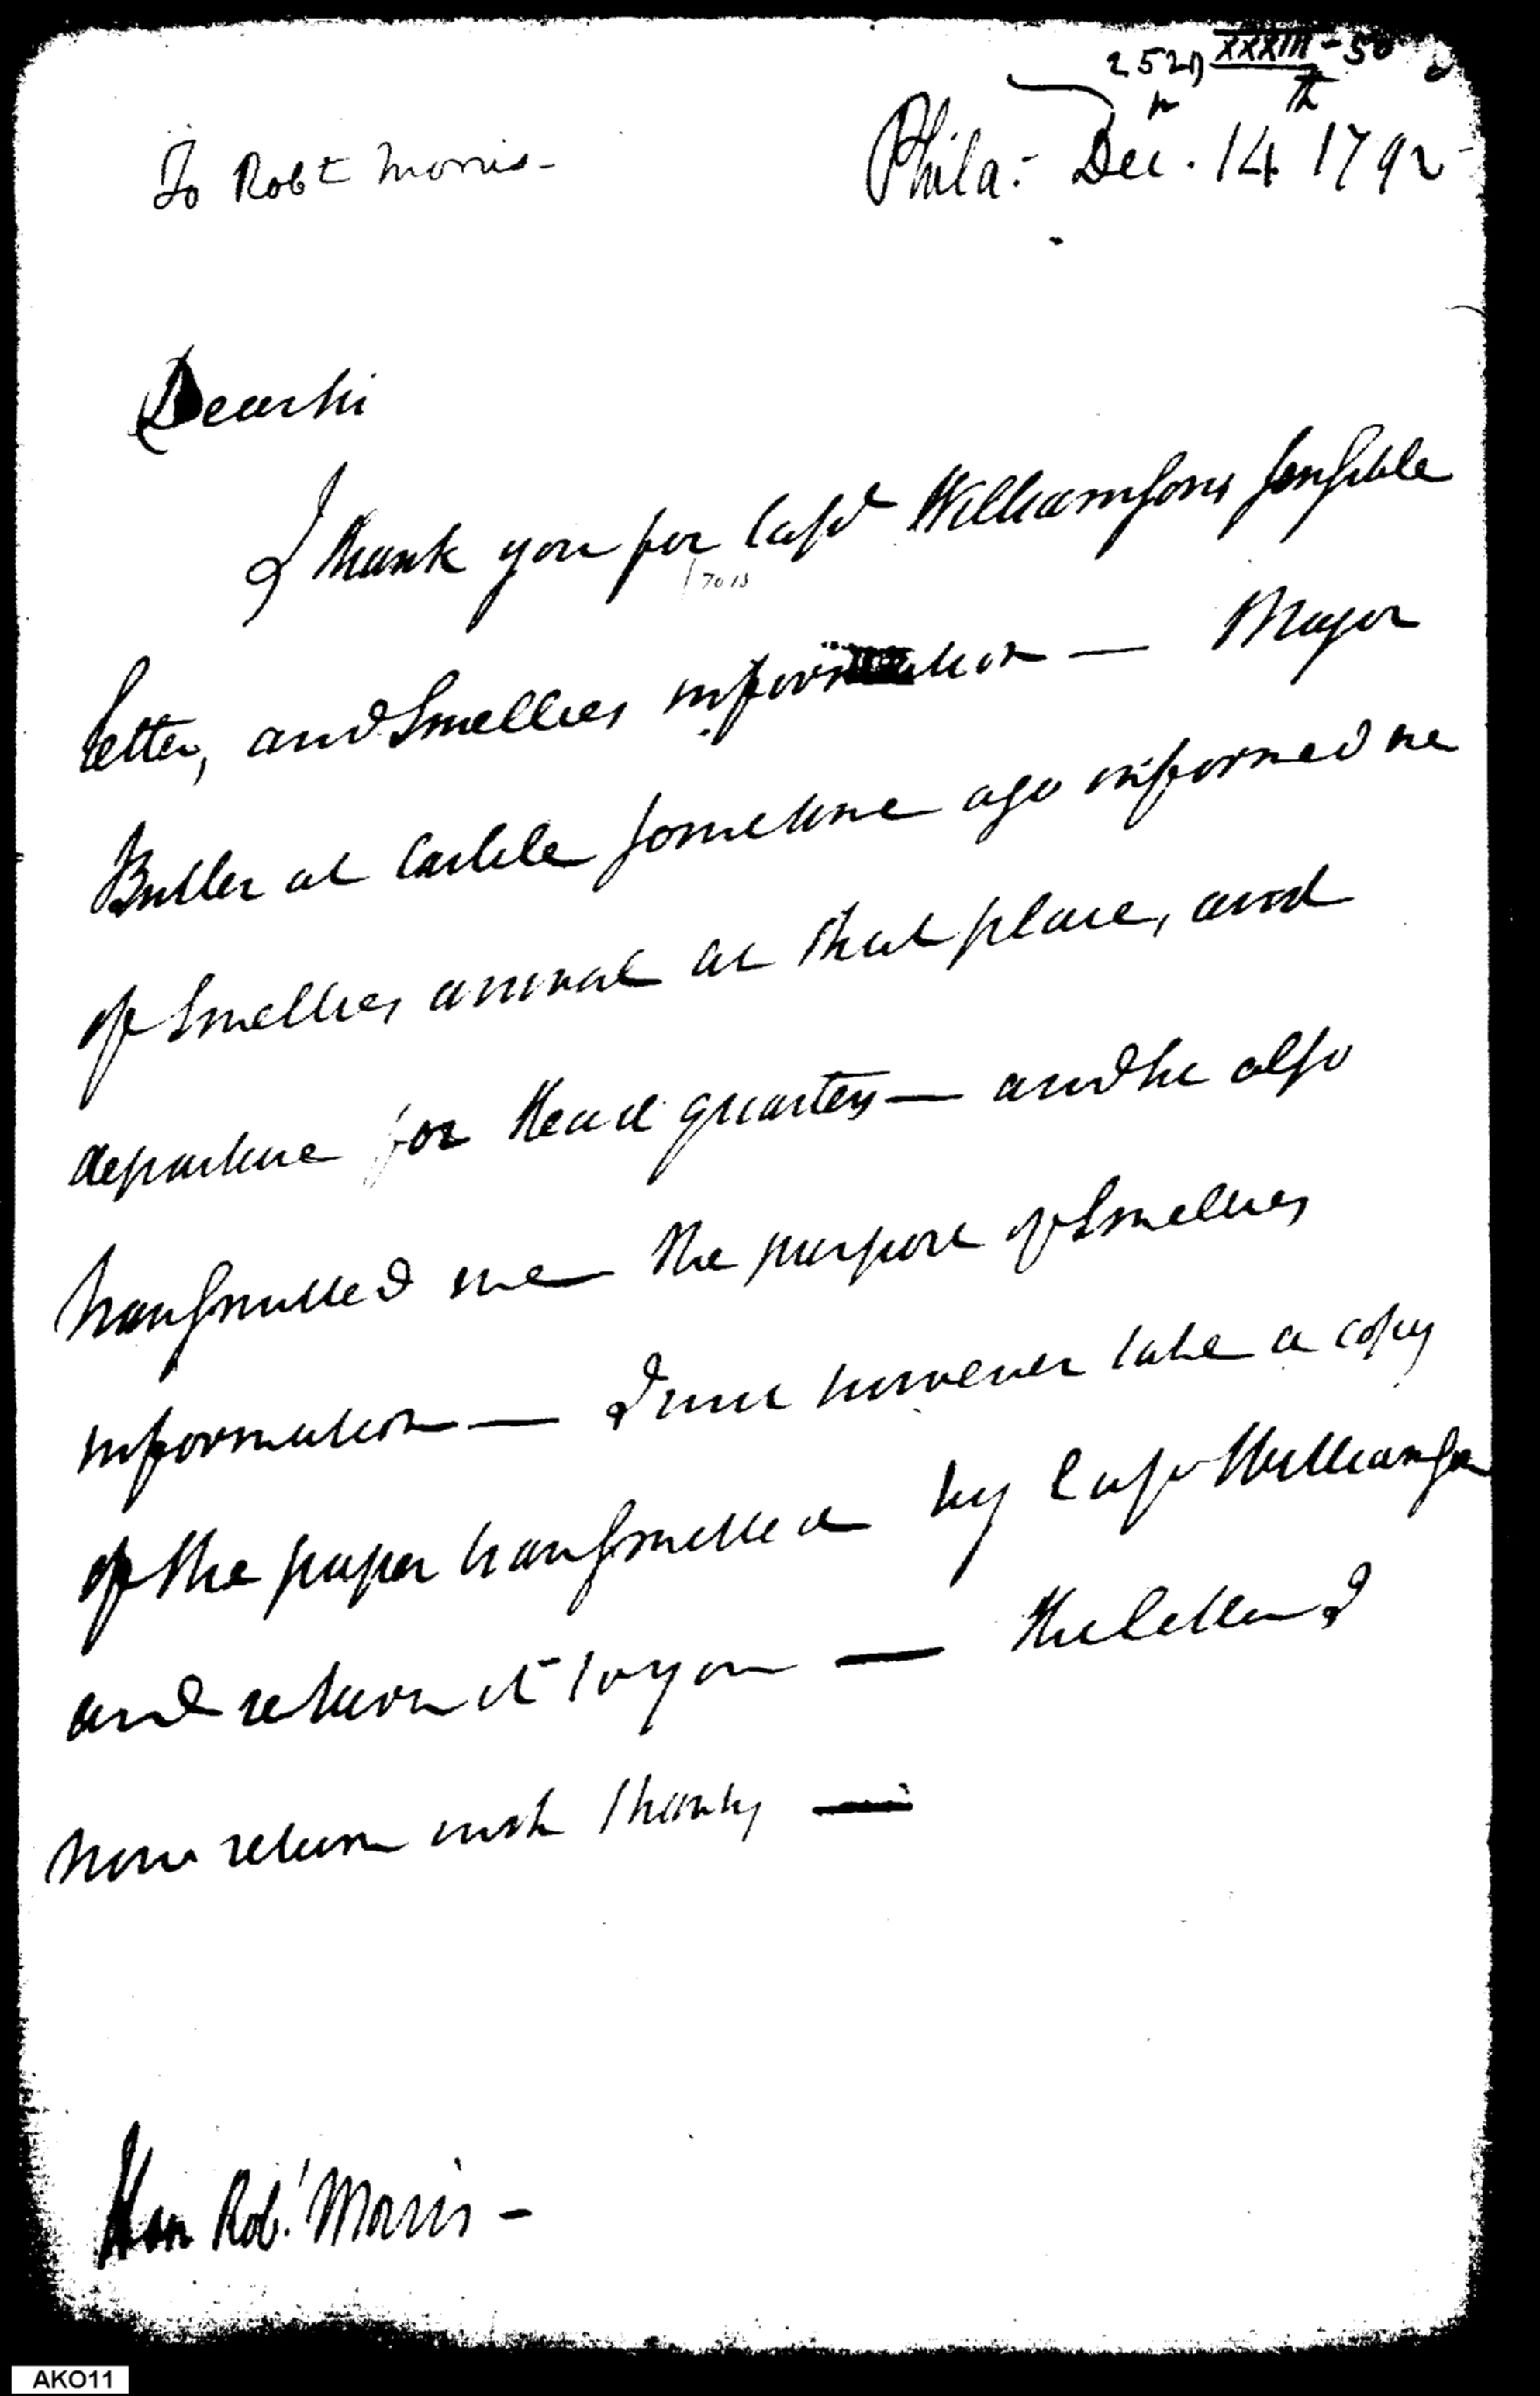 252D XXXIII - 50
To Robt Morris -
Phila: Decr. 14th 1792
Dear Sir
I thank you for Capt Williamsons sensible
letter, and Smellies information — Major
Butler at Carlile sometime ago informed me
of Smellies arrival at that place, and
departure for Head quarters — and he also
transmitted me the purport of Smellies
information — I will however take a copy
of the paper transmitted by Capt Williamson
and return it to you — The letter I
now return with thanks —
Hon Robt. Morris -
AKO11